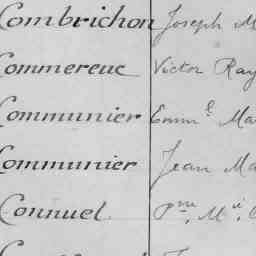 Combrichon Joseph M
Commereuc Victor Ray
Communier Emm.e Ma
Communier Jean Ma
Connuel P.rre M.ie